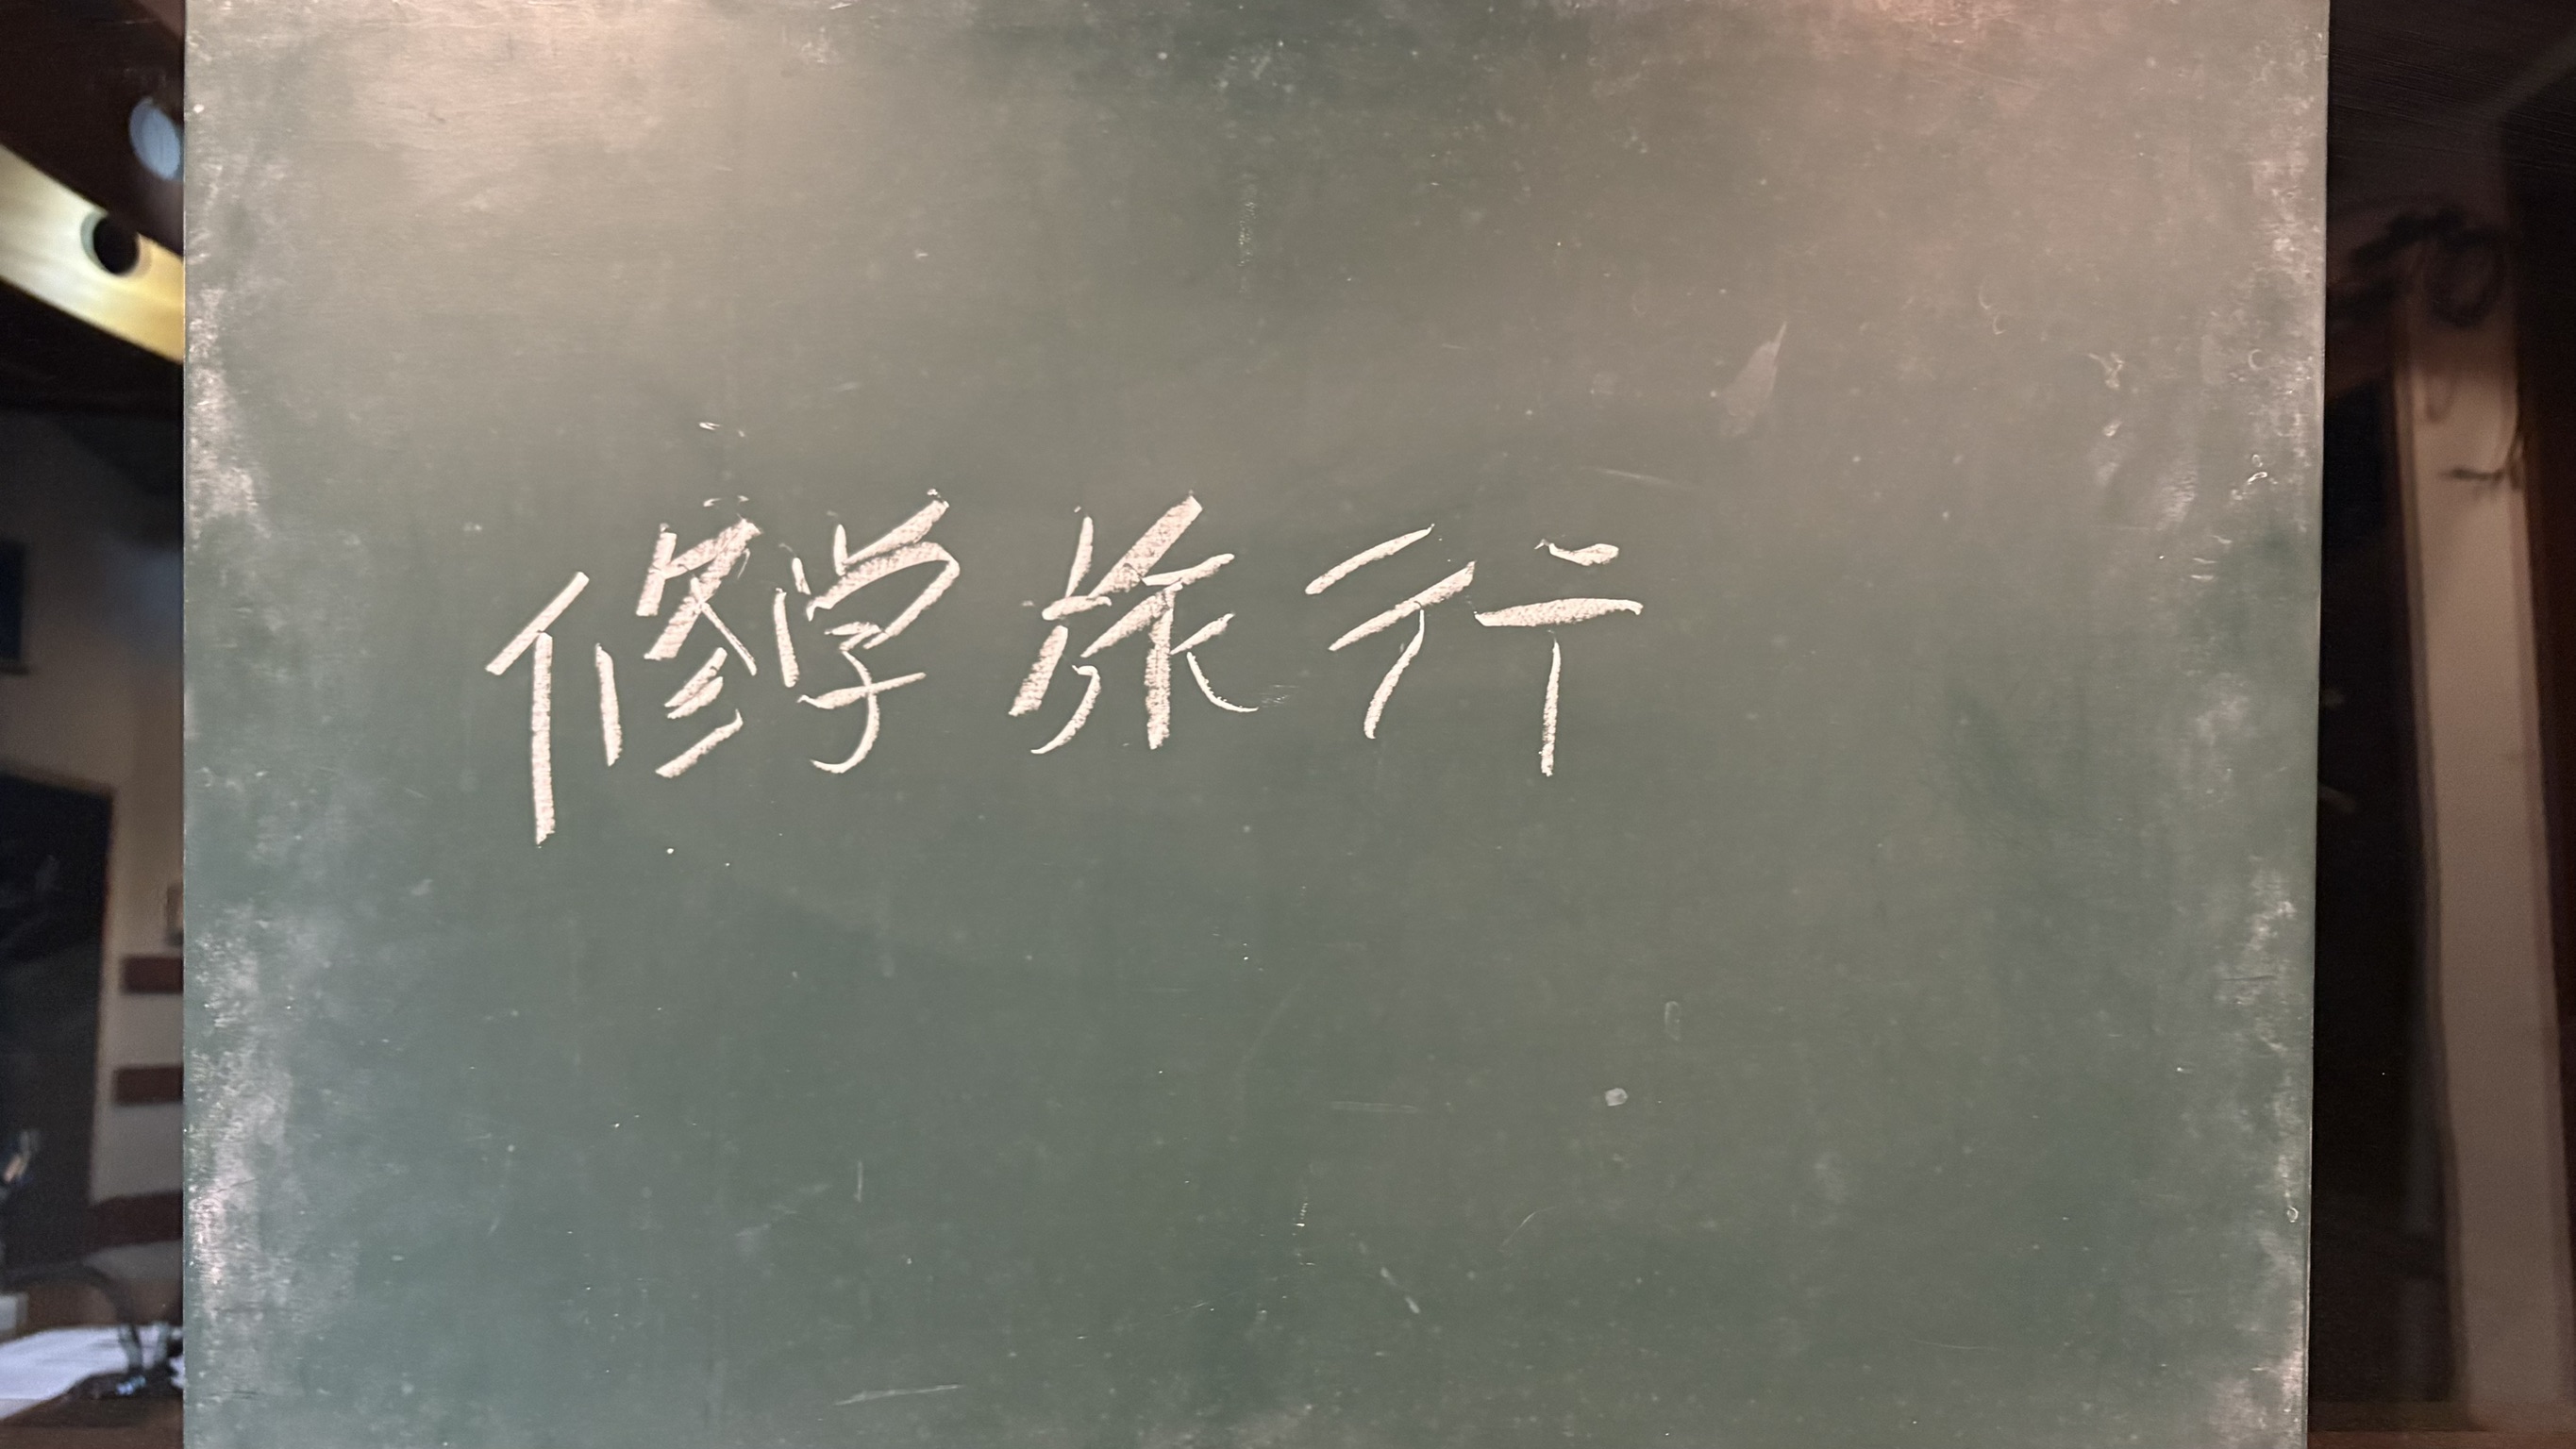 修学旅行